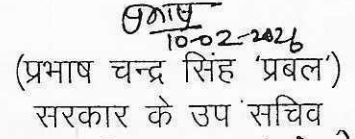 प्रभाष
10-02-2026
(प्रभाष चन्द्र सिंह 'प्रबल')
सरकार के उप सचिव